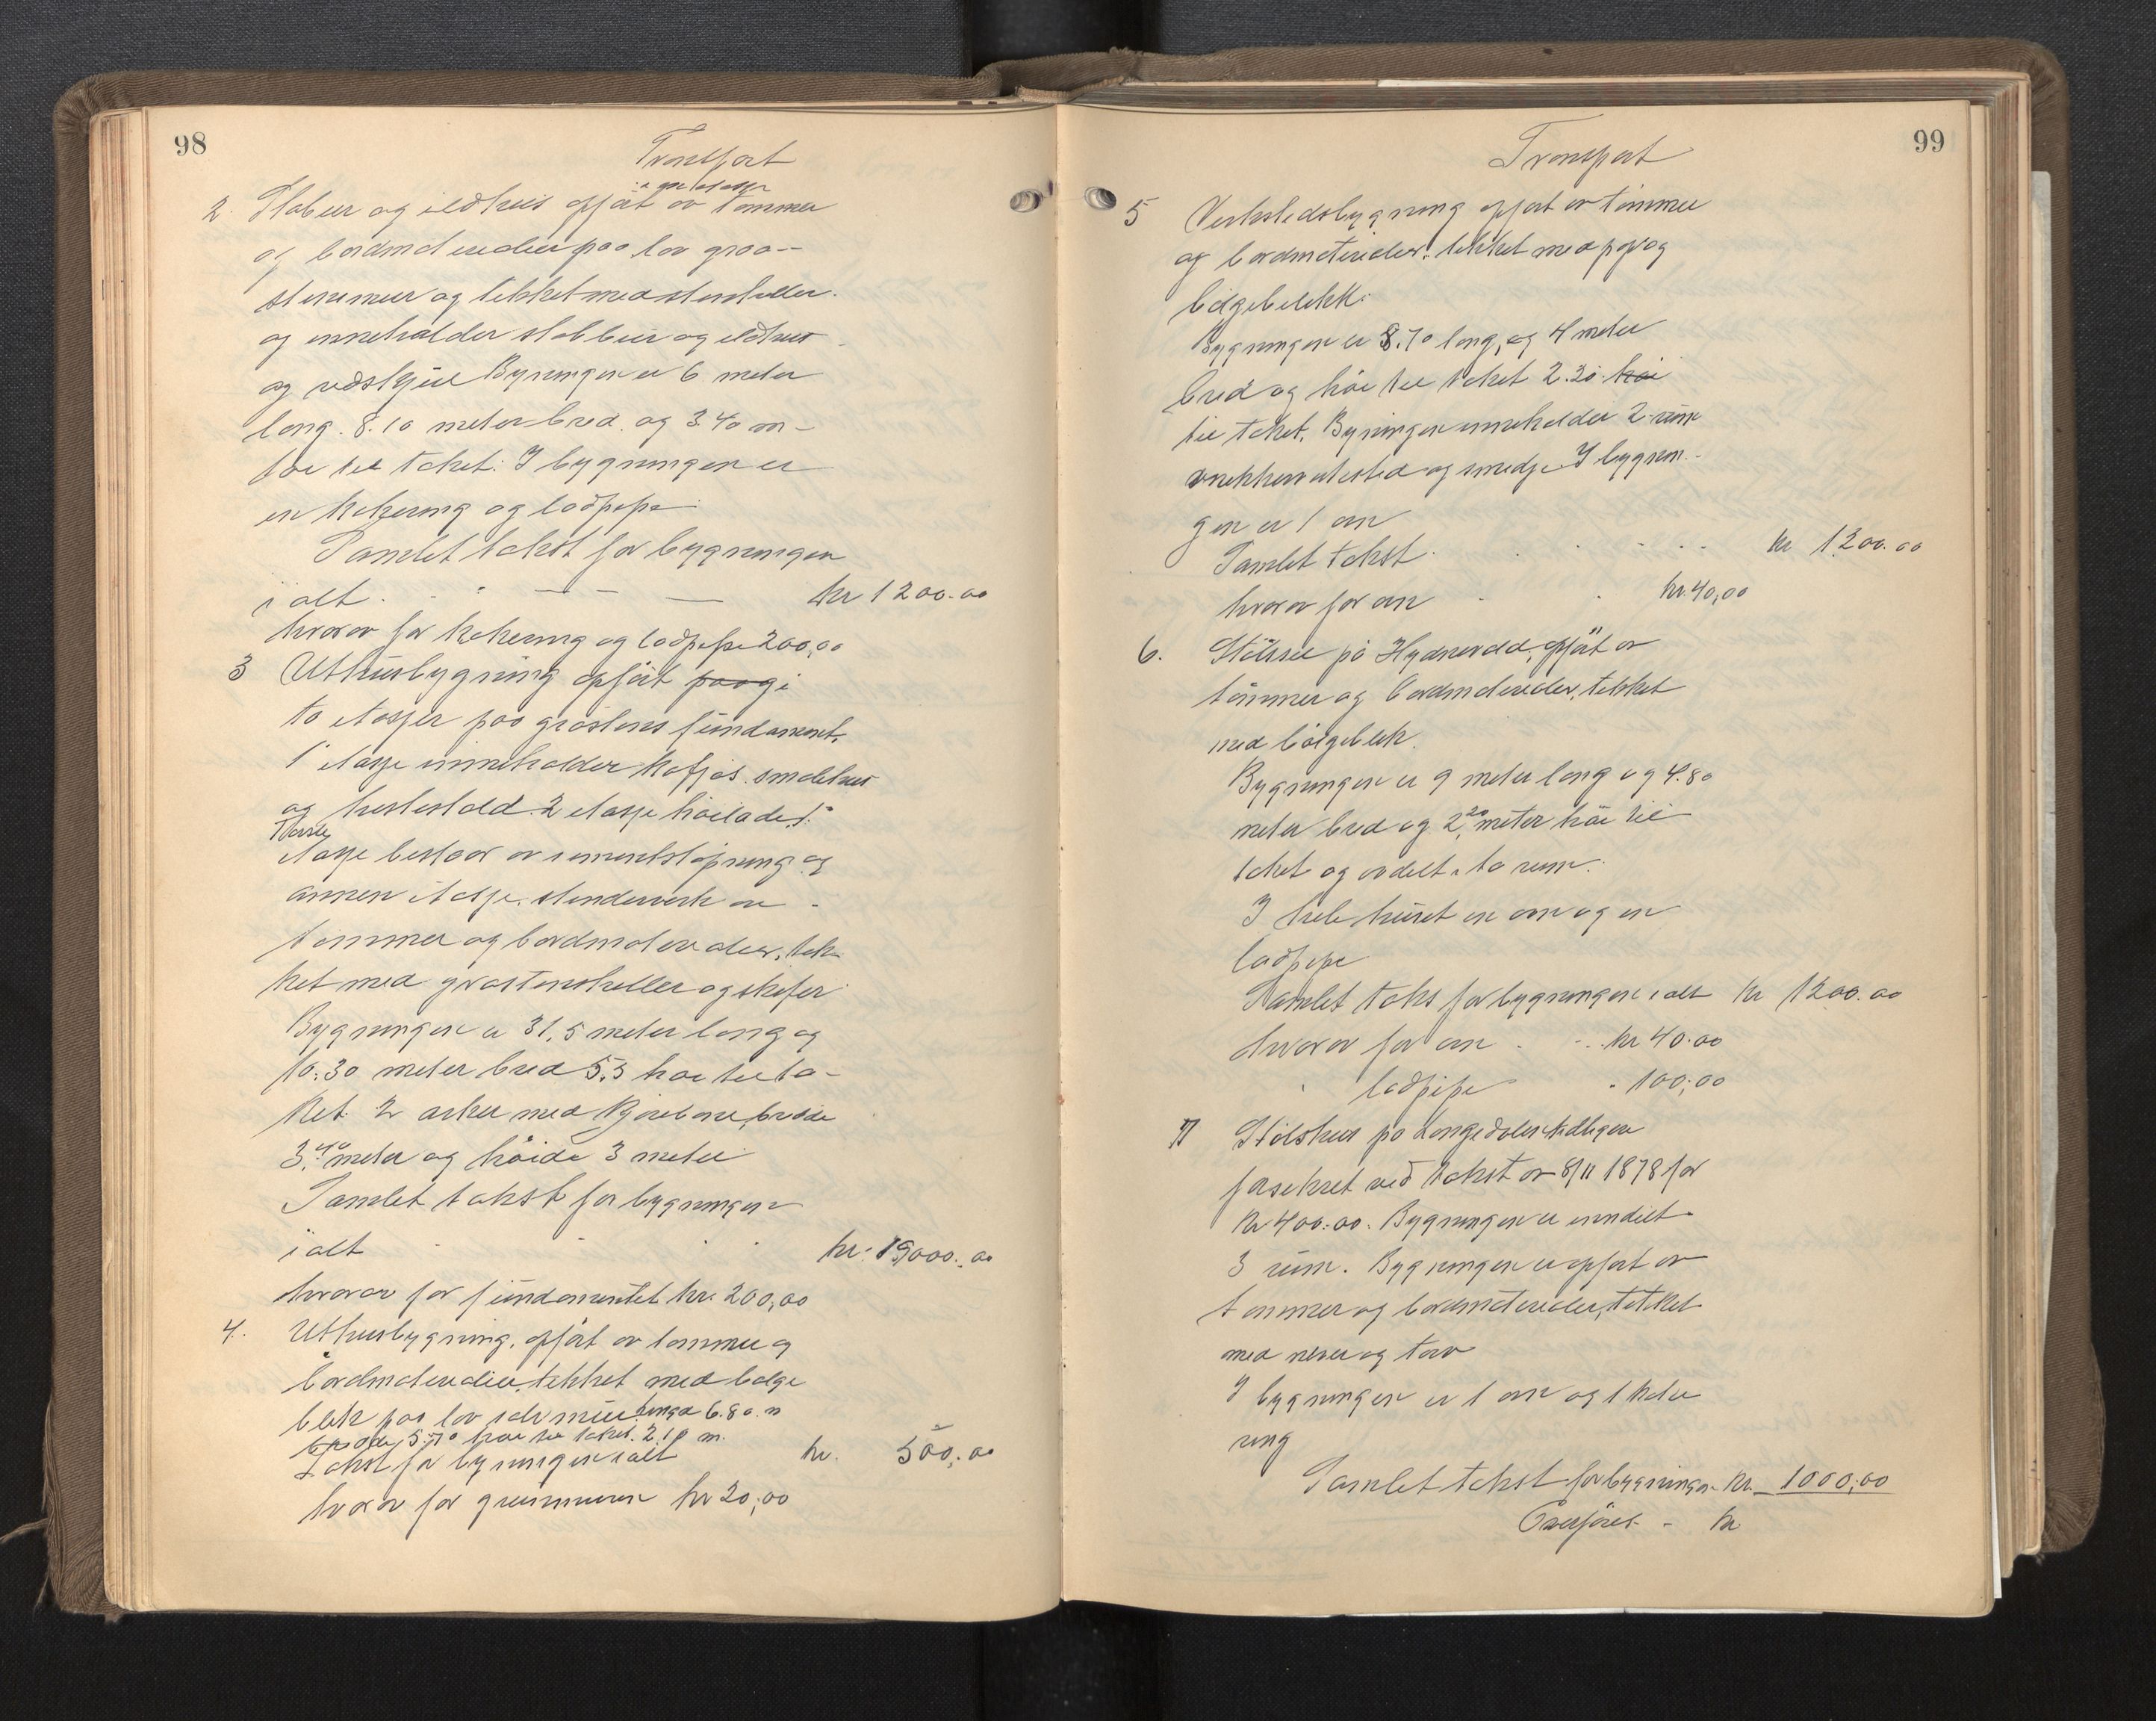 98
Transport
i en etasje
2. Stabur og ildhus opført av tømmer
og bordmaterialier paa lav graa-
stensmur og tekket med stenheller.
og inneholder stabbur og ildhus
og vedskjul Bygningen er 6 meter
lang. 8.10 meter bred. og 3.40 m
høi til taket. I bygningen er
en kokering og ladpipe
Samlet takst for bygningen
i alt. kr 1200.00
hvorav for kokering og ladpipe 200,00
3 Uthusbygning opført paa g i
to etasjer paa gråstens fundament.
1 etasje inneholder kofjøs. smalehus
og hestestald 2 etasje høilade. 1.
første
etasje bestaar av sementstøpning og
annen etasje. stenderverk av
tømmer og bordmaterialier, tek-
ket med gråstensheller og skifer
Bygningen er 31,5 meter lang og
10.30 meter bred 5,5 høi til ta-
ket. 2 arker med kjørebane, bredde
3,40 meter og høide 3 meter
Samlet takst for bygningen
i alt kr. 19000.00
hvorav for fundamentet kr. 200,00
4. Uthusbygning, opført av tømmer og
bordmaterialier, tekket med bølge
blik paa lav mur. Lengde 6.80 m
bredde 5.70 høi til taket. 2.10 m.
Takst for bygningen i alt kr. 500,00
hvorav for grunnmuren kr 20,00
99
Transport
5 Verkstedsbygning opført av tømmer
og bordmaterialer. tekket med papp og
bølgeblekk.
Bygningen er 8.70 lang, og 4 meter
bred og høi til taket 2.30. høi
til taket. Bygningen inneholder 2 rum
snekkerverksted og smedje I bygnin-
gen er 1 ovn
Samlet takst. kr 1200.00
hvorav for ovn kr. 40,00
6. Stølssel på opført av
tømmer og bordmaterialer, tekket
med bølgeblek.
Bygningen er 9 meter lang og 4.80
meter bred og 2,20 meter høi til
taket og avdelt i to rum.
I hele huset en ovn og en
ladpipe
Samlet takst for bygningen i alt kr 1200.00
hvorav for ovn kr 40.00
" ladpipe " 100,00
7 Stølshus på Langedalen tidligere
forsekret ved takst av 8/11 1878 for
kr 400.00. Bygningen er inndelt
3 rum. Bygningen er opført av
tømmer og bordmaterialer, tekket
med never og torv
I bygningen er 1 ovn og 1 koke
ring
Samlet takst for bygningen kr. 1000,00
Overføres - kr